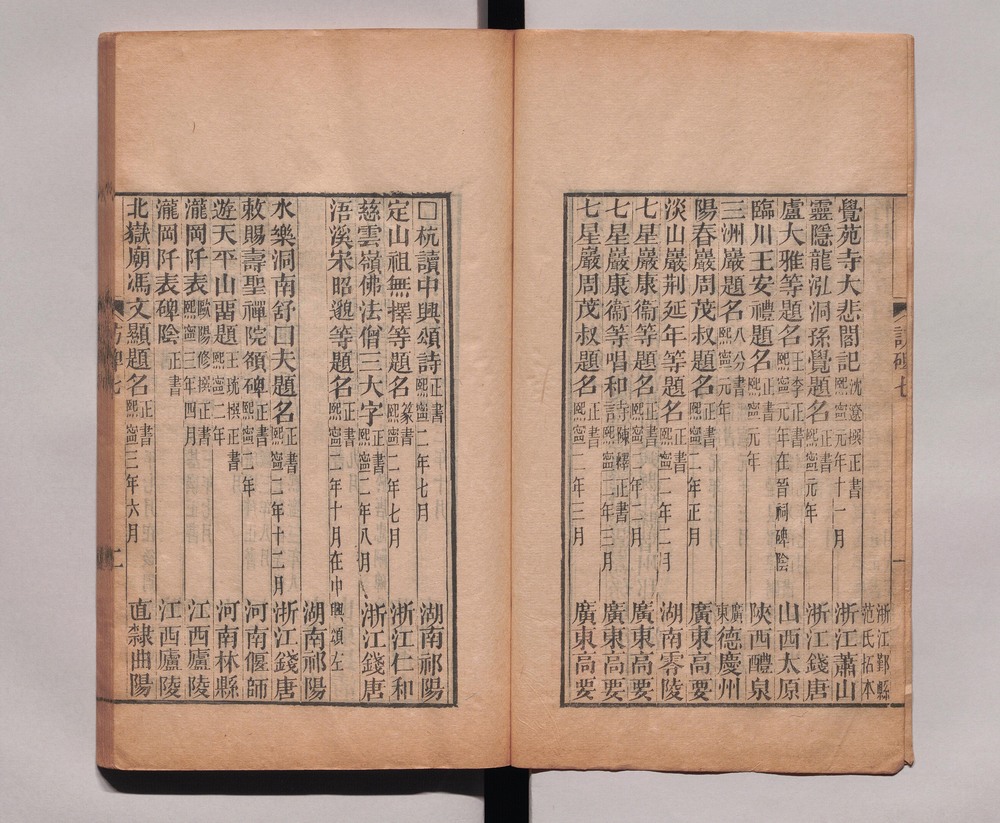 浙江鄞縣范氏拓本
覺苑寺大悲閣記 沈遼撰正書熙寧元年十一月 浙江蕭山
靈隱龍泓洞孫覺題名 正書熙寧元年 浙江錢唐
盧大雅等題名 王李正書熙寧元年在晉祠碑陰 山西太原
臨川王安禮題名 正書熙寧元年 陝西醴泉
三洲巖題名 八分書熙寧元年 廣東德慶州
陽春巖周茂叔題名 正書熙寧二年正月 廣東高要
淡山巖荆延年等題名 正書熙寧二年二月 湖南零陵
七星巖康衞等題名 正書熙寧二年二月 廣東高要
七星巖康衞等唱和詩 陳繹正書熙寧二年三月 廣東高要
七星巖周茂叔題名 正書熙寧二年三月 廣東高要
訪碑七 一
□杭讀中興頌詩 正書熙寧二年七月 湖南祁陽
定山祖無擇等題名 篆書熙寧二年七月 浙江仁和
慈雲嶺佛法僧三大字 正書熙寧二年八月 浙江錢唐
浯溪宋昭邈等題名 正書熙寧二年十月在中興頌左
湖南祁陽
水樂洞南舒曰夫題名 正書熙寧二年十二月 浙江錢唐
敕賜壽聖禪院額碑 正書熙寧二年 河南偃師
遊天平山畱題 王珫撰正書熙寧二年 河南林縣
瀧岡阡表 歐陽修撰正書熙寧三年四月 江西廬陵
瀧岡阡表碑陰 正書 江西廬陵
北嶽廟馮文顯題名 正書熙寧三年六月 直隸曲陽
訪碑七 二